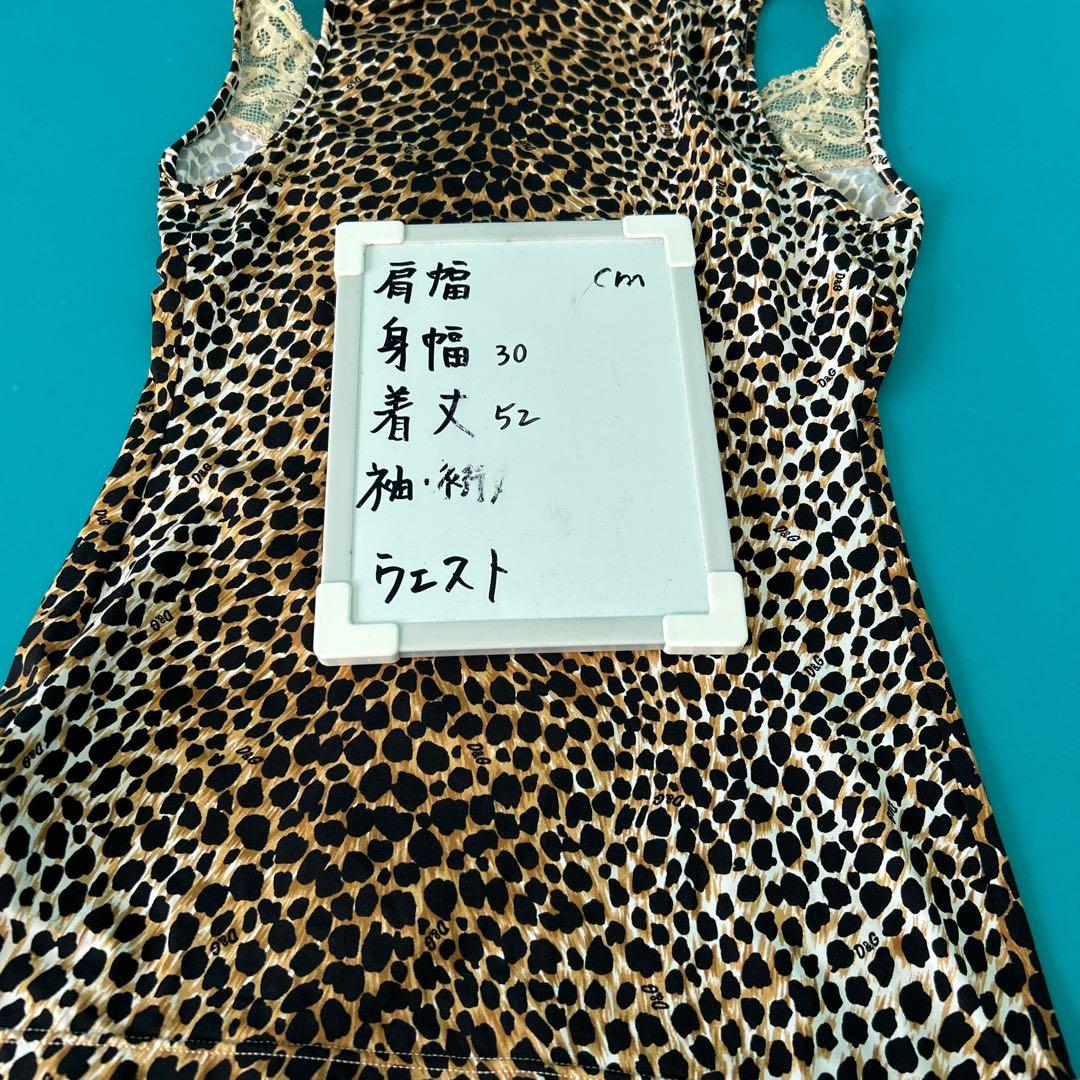 肩幅 cm
身幅 30
着丈 52
袖・裄
ウエスト
D&G
D&G
D&G
D&G
D&G
D&G
D&G
D&G
D&G
D&G
D&G
D&G
D&G